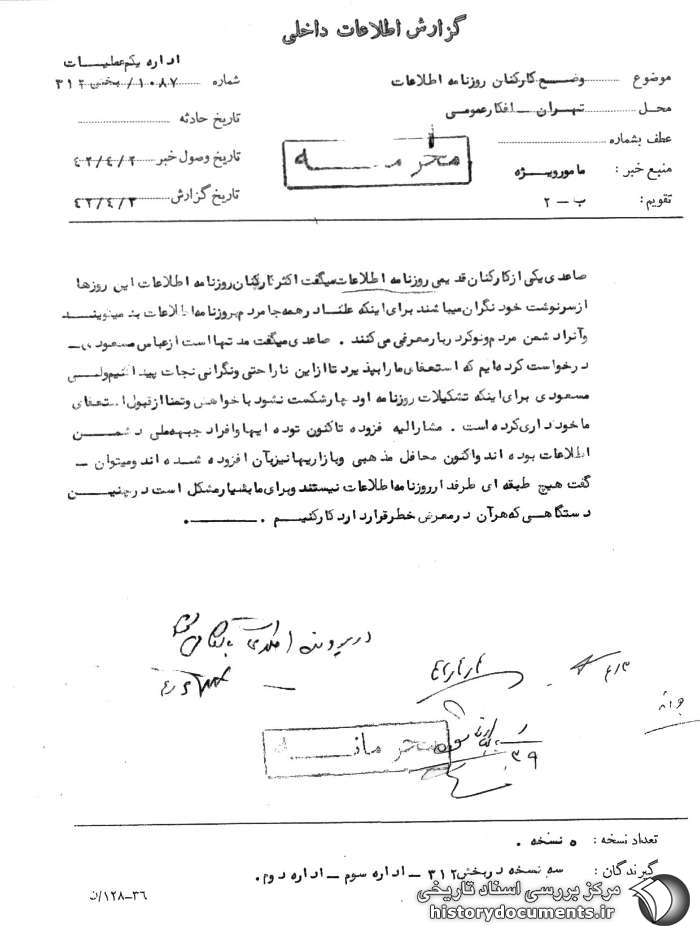 گزارش اطلاعات داخلی
اداره یکم عملیات
موضوع وضع کارکنان روزنامه اطلاعات
شماره ۱۰۸۷/ بخش ۳۱۲
محل تهران ــ افکار عمومی
تاریخ حادثه
عطف بشماره
محرمانه
تاریخ وصول خبر ۴۲/۴/۲
منبع خبر : مامور ویژه
تاریخ گزارش ۴۲/۴/۳
تقویم : ب ــ ۲
صاعدی یکی از کارکنان قدیمی روزنامه اطلاعات میگفت اکثر کارکنان روزنامه اطلاعات این روزها
از سرنوشت خود نگران میباشند برای اینکه علنا در همه جا مردم بروزنامه اطلاعات بد میگویند
و آنرا دشمن مردم و نوکر دربار معرفی می کنند . صاعدی میگفت مدتها است از عباس مسعودی ــ
درخواست کرده ایم که استعفای ما را بپذیرد تا از این ناراحتی و نگرانی نجات پیدا کنیم ولی
مسعودی برای اینکه تشکیلات روزنامه او دچار شکست نشود با خواهش و تمنا از قبول استعفای
ما خودداری کرده است . مشارالیه افزوده تاکنون توده ایها و افراد جبهه ملی دشمن
اطلاعات بوده اند و اکنون محافل مذهبی و بازاریها نیز بآن افزوده شده اند و میتوان ــ
گفت هیچ طبقه ای طرفدار روزنامه اطلاعات نیستند و برای ما بسیار مشکل است در چنین
دستگاهی که هر آن در معرض خطر قرار دارد کار کنیم .
در پرونده
۴/۳
۳۹
محرمانه
تعداد نسخه : ۵ نسخه .
گیرندگان : سه نسخه در بخش ۳۱۲ ــ اداره سوم ــ اداره دوم .
۳۶-۱۲۸/ن
مرکز بررسی اسناد تاریخی
historydocuments.ir